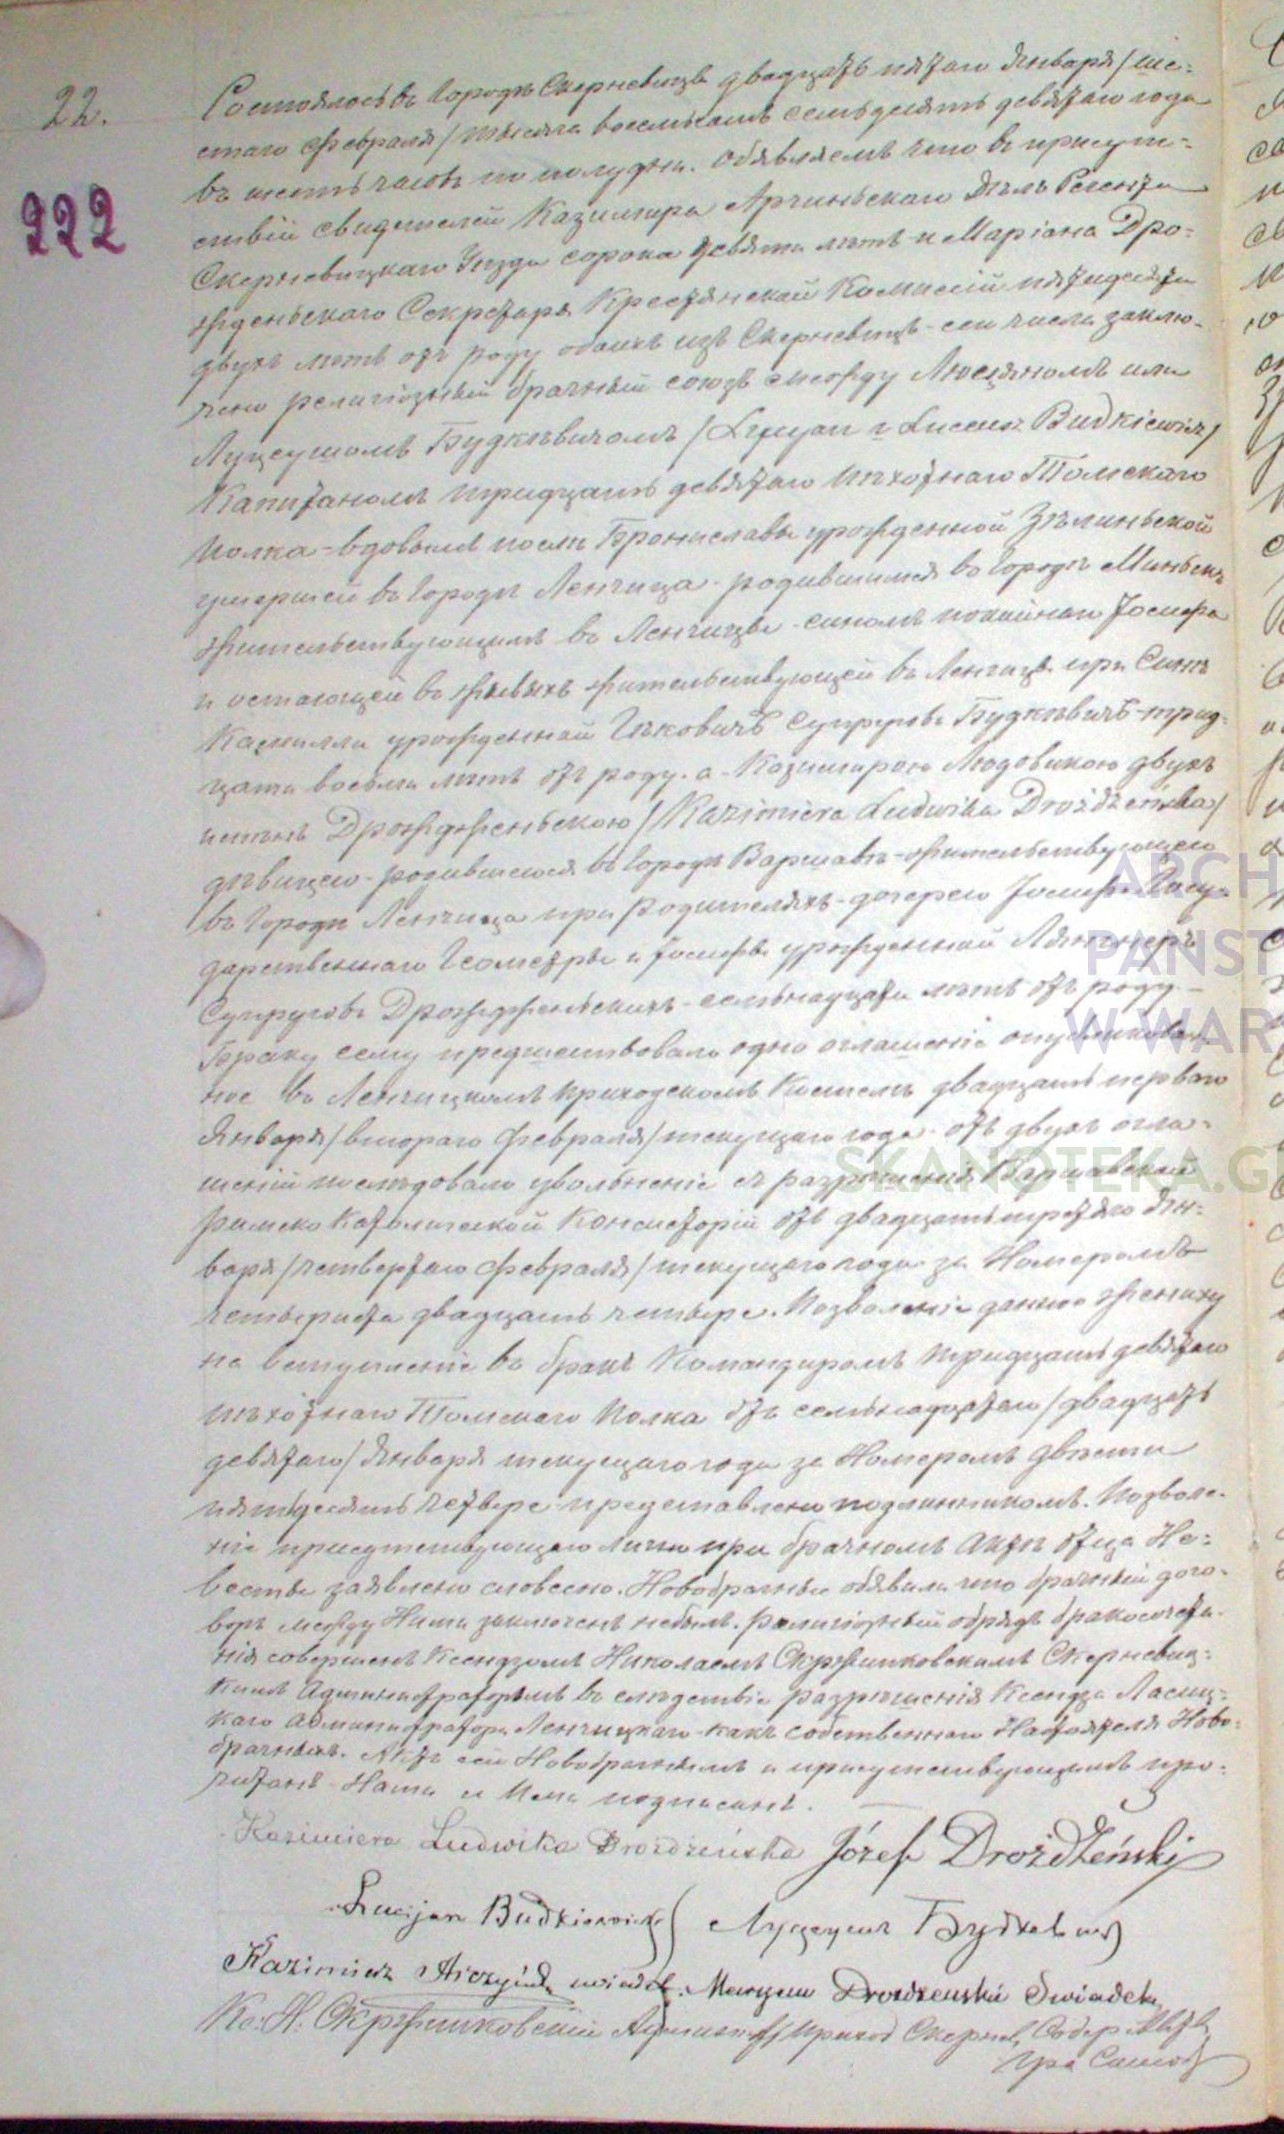 22.
222
Состоялось въ Городѣ Скерневицѣ двадцать пятаго Января /ше-
стаго Февраля/ тысяча восемьсотъ семьдесятъ девятаго года
въ шесть часовъ по полудни. Объявляемъ что въ присут-
ствіи свидетелей Казимира Арчиньскаго Дѣлъ Регента
Скерневицкаго Уезда сорока девяти лѣтъ и Маріана Дро-
жденьскаго Секретаря Крестянской Комиссіи пятидесяти
двухъ лѣтъ отъ роду обоихъ изъ Скерневицъ - сего числа заклю-
чено религіозный брачный союзъ между Люсцяномъ или
Луцеушомъ Будкѣвичомъ /Lucyan v Luceusz Budkiewicz/
Капитаномъ тридцать девятаго пѣхотнаго Томскаго
Полка - вдовымъ послѣ Брониславы урожденной Зѣлиньской
умершей въ Городѣ Ленчица - родившимся въ Городѣ Миньскѣ
жительствующимъ въ Ленчицѣ - сыномъ покойнаго Іосифа
и остающей въ живыхъ жительствующей въ Ленчицѣ при Сынѣ
Камиллы урожденной Супруговъ Будкѣвичъ - трид-
цати восьми лѣтъ отъ роду. а Казимирою Людовикою двухъ
именъ Дрожджѣньскою /Kazimiera Ludwika Drożdżeńska/
дѣвицею - родившеюся въ Городѣ Варшавѣ - жительствующею
въ Городѣ Ленчица при Родителяхъ - дочерею Іосифа Госу-
дарственнаго Геометры и Іосифы урожденной
Супруговъ Дрожджѣньскихъ - семьнадцати лѣтъ отъ роду -
Браку сему предшествовало одно оглашеніе опубликован-
ное въ Ленчицкомъ приходскомъ Костелѣ двадцать перваго
Января /втораго Февраля/ текущаго года - отъ двухъ огла-
шеній послѣдовало увольненіе съ разрѣшенія Варшавской
римско Католической Консисторіи отъ двадцать третьяго Ян-
варя /четвертаго Февраля/ текущаго года за Номеромъ
четыреста двадцать четыре. Позволеніе данное жениху
на вступленіе въ бракъ Командиромъ тридцать девятаго
пѣхотнаго Томскаго Полка отъ семьнадцатаго /двадцать
девятаго/ Января текущаго года за Номеромъ двѣсти
пятьдесятъ четыре представлено подлинникомъ. Позволе-
ніе присутствующаго лично при брачномъ Актѣ Отца Не-
весты заявлено словесно. Новобрачные объявили что брачный дого-
воръ между Ними заключенъ небылъ. Религіозный обрядъ бракосочета-
нія совершенъ Ксендзомъ Николаемъ Скржинковскимъ Скерневиц-
кимъ Администраторомъ въ слѣдствіе разрѣшенія Ксендза Ласиц-
каго Администратора Ленчицкаго какъ собственнаго Настоятеля Ново-
брачныхъ. Актъ сей Новобрачнымъ и присутствующимъ про-
читанъ Нами и Ими подписанъ.
Kazimiera Ludwika Drozdżeńska Józef Drożdżeński
Lucijan Budkiewicz Луцеушъ Будкевичъ
Kazimierz świadek. Maryan Drozdzenski Swiadek
Кс. Н. Скржинковскій Админист. Приход Скернев. Содер. Акт.
Гра. Сост.
ARCH
PAŃST
W WAR
SKANOTEKA.G